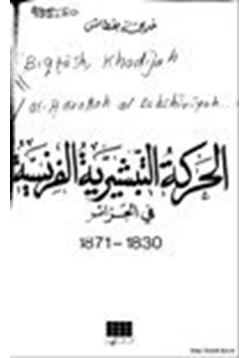 خديجة بقطاش
Biqtāsh, Khadijah
al-Harakah al tabshiriyah...
الحركة التبشيرية الفرنسية
في الجزائر
1871-1830